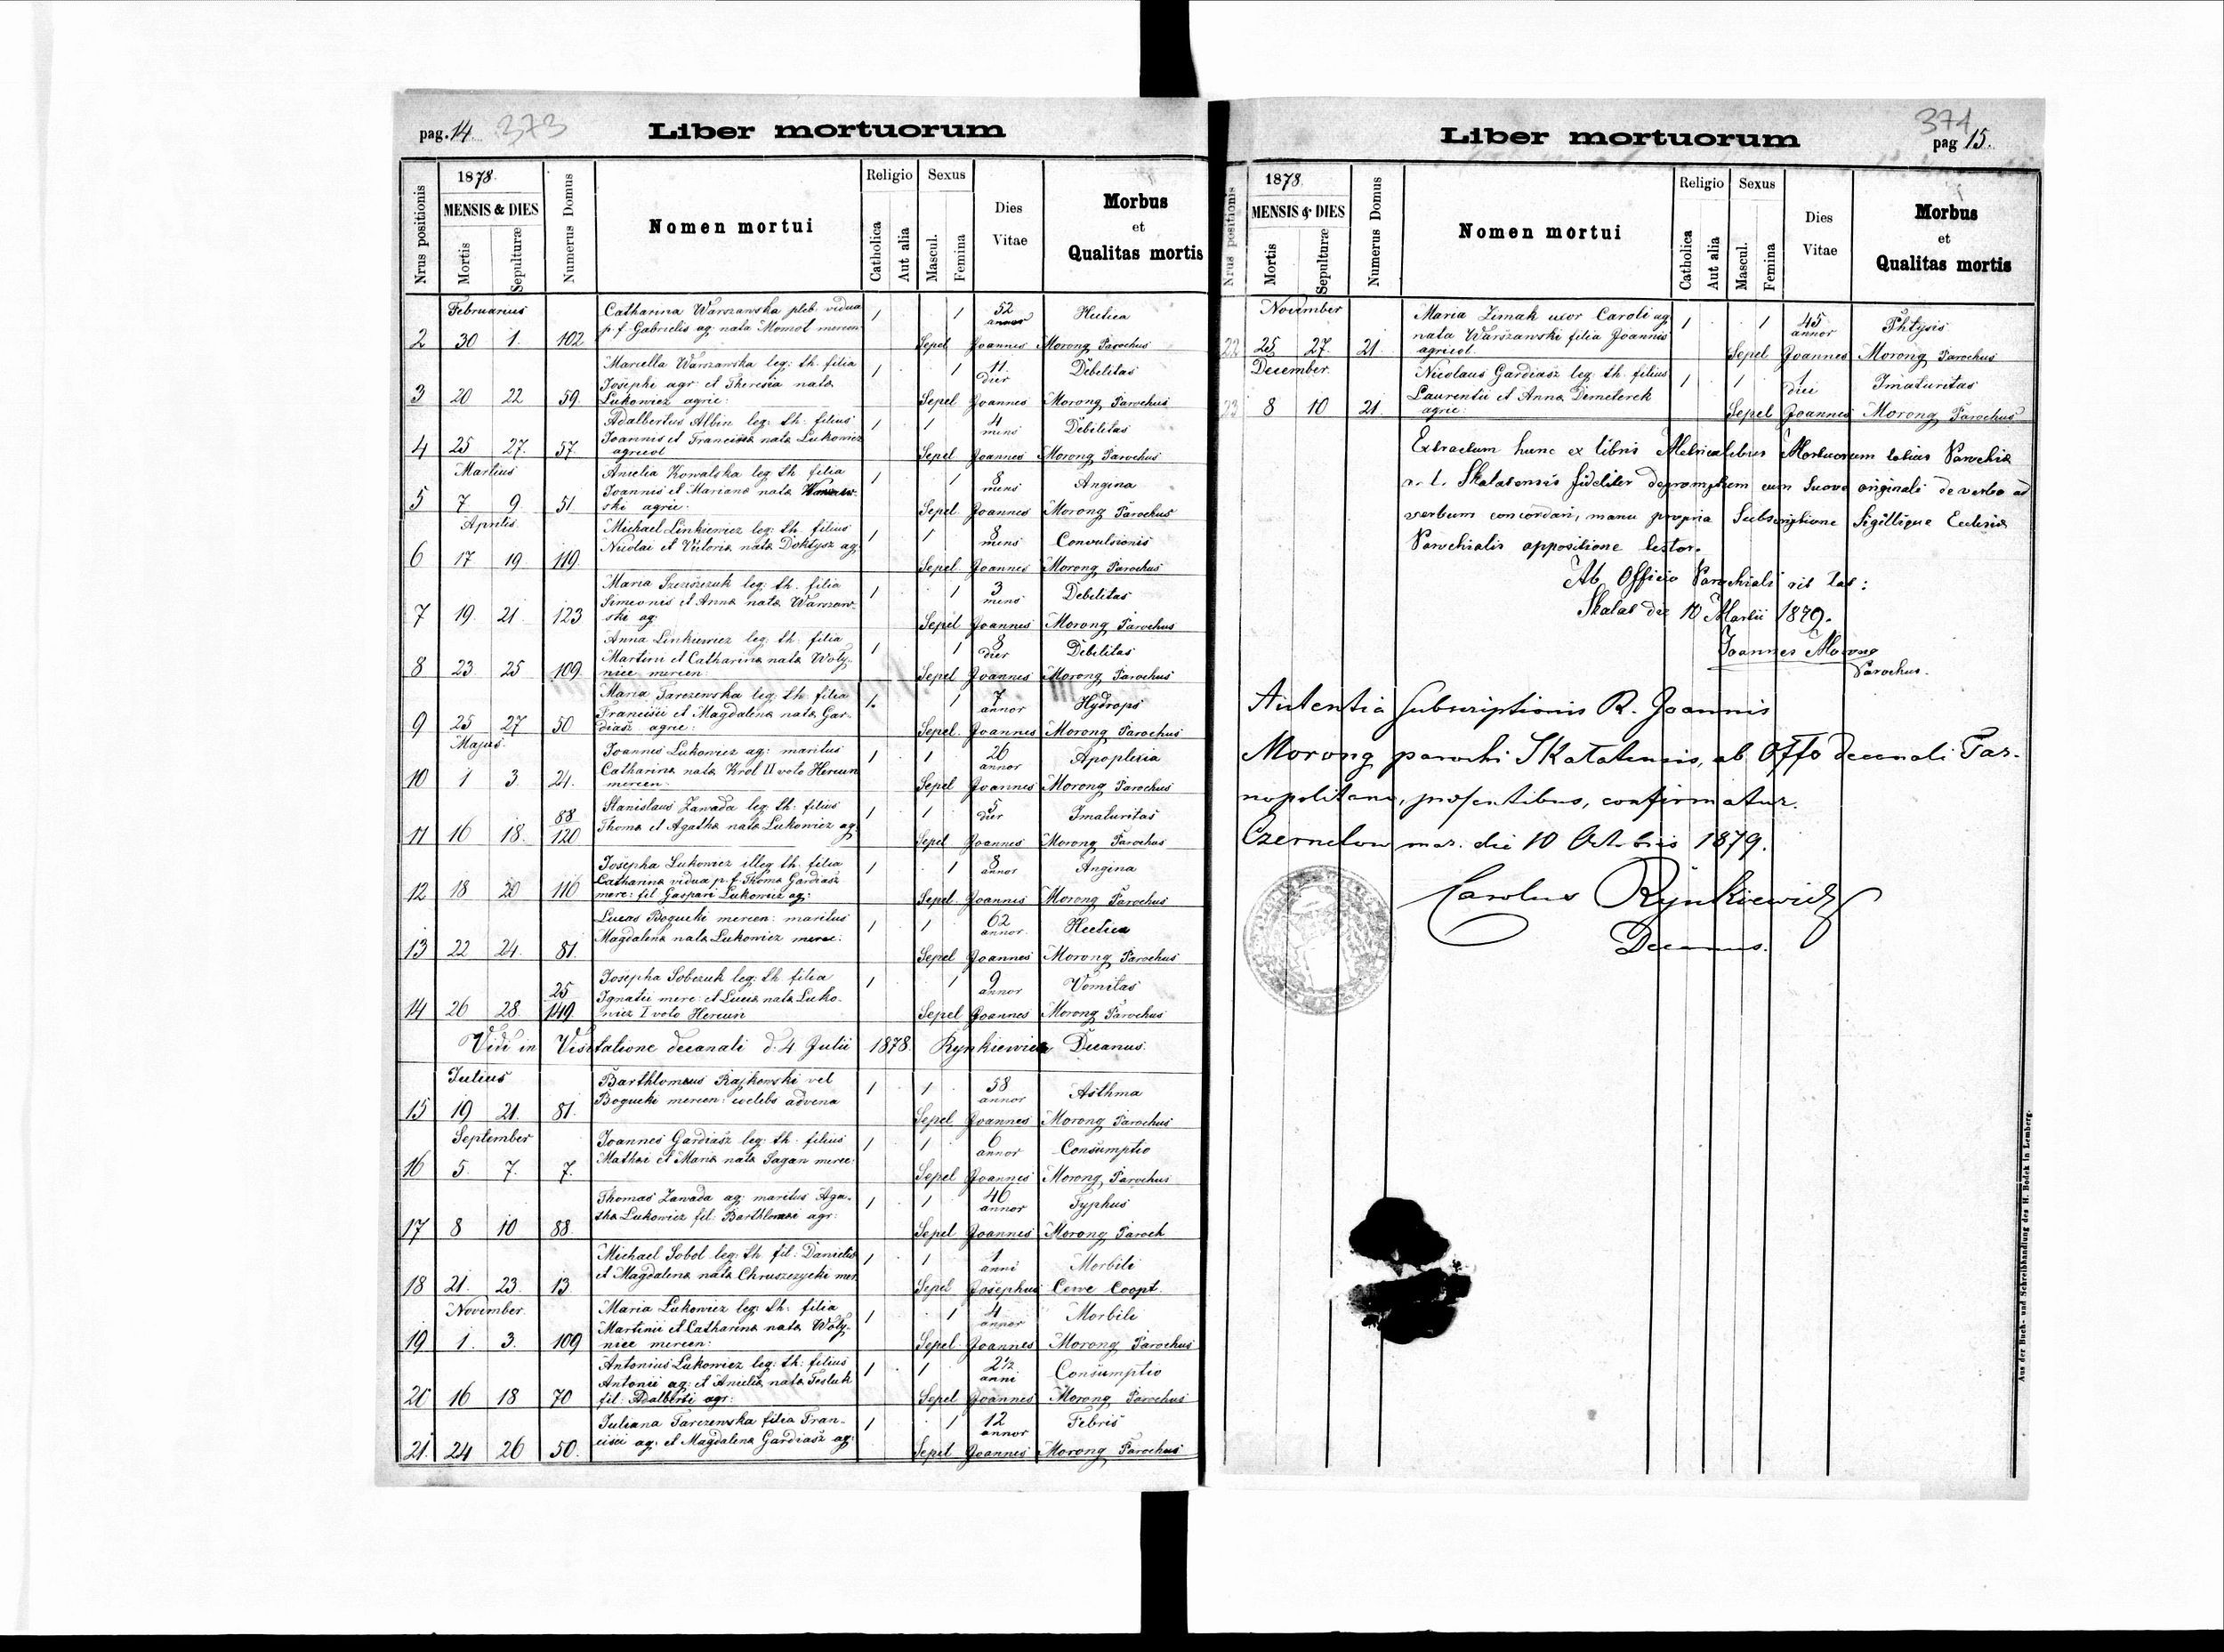 pag. 14. 373
Liber mortuorum
Nrus positionis
1878.
MENSIS & DIES
Mortis
Sepulturæ
Numerus Domus
Nomen mortui
Religio
Catholica
Aut alia
Sexus
Mascul.
Femina
Dies
Vitae
Morbus
et
Qualitas mortis
Februarius
Catharina Warszawska pleb. vidua 1 1 52 annor Hectica
p. f. Gabrielis ag: nata Momot mercen
2 30 1. 102 Sepel Joannes Morong Parochus
Mariella Warszawska leg: th. filia 1 1 11. dier Debilitas
Josephi agr: et Theresia nata
3 20 22 59 Lukowicz agric: Sepel Joannes Morong Parochus
Adalbertus Albin leg: th: filius 1 1 4 mens Debilitas
Joannis et Francisca nata Lukowicz
4 25 27. 57. agricol Sepel Joannes Morong Parochus
Martius
Anielia Kowalska leg th filia 1 1 8 mens Angina
Joannis et Mariana nata Warszaw-
5 7 9. 51 ski agric: Sepel Joannes Morong Parochus
Aprilis
Michael Linkiewicz leg: th. filius 1 1 8 mens Convulsionis
Nicolai et Victoria nata Doktysz ag:
6 17 19 119 Sepel Joannes Morong Parochus
Maria Szeszczuk leg: th. filia 1 1 3 mens Debilitas
Simeonis et Anna nata Warszaw-
7 19. 21. 123 ski ag: Sepel Joannes Morong Parochus
Anna Linkiewicz leg: th: filia 1 1 8 dier Debilitas
Martini et Catharina nata Woty-
8 23 25 109 nice mercen Sepel Joannes Morong Parochus
Maria Tarczewska leg: th: filia 1. 1 7 annor Hydrops
Francisci et Magdalena nata Gar-
9 25 27 50 diasz agric: Sepel. Joannes Morong Parochus
Majus.
Joannes Lukowicz ag: maritus 1 1 26 annor Apoplexia
Catharina nata Krol II voto Hercun
10 1 3. 24. mercen Sepel Joannes Morong Parochus
88
Stanislaus Zawada leg: th: filius 1 1 5 dier Imaturitas
Thoma et Agatha nata Lukowicz ag:
11 16 18. 120 Sepel Joannes Morong Parochus
Josepha Lukowicz illeg th. filia 1 1 8 annor Angina
Catharina vidua p. f. Thoma Gardiasz
12 18 20 116 merc: fil Gaspari Lukowicz ag: Sepel. Joannes Morong Parochus
Lucas Bogucki mercen: maritus 1 1 62 annor Hectica
Magdalena nata Lukowicz merce:
13 22 24. 81. Sepel Joannes Morong Parochus
Josepha Sobczuk leg: th filia 1 1 9 annor Vomitas
25
Ignatii merc: et Lucia nata Luko-
14 26 28. 149 wicz I voto Hercun Sepel Joannes Morong Parochus
Vidi in Visitatione decanali d. 4 Julii 1878. Rynkiewicz Decanus.
Julius
Barthlomeus Rajkowski vel 1 1 58 annor Asthma
Bogucki mercen: coelebs advena
15 19 21. 81. Sepel Joannes Morong Parochus
September
Joannes Gardiasz leg: th. filius 1 1 6 annor Consumptio
Mathei et Maria nata Sagan merce:
16 5. 7. 7. Sepel Joannes Morong Parochus
Thomas Zawada ag: maritus Aga- 1 1 46 annor Typhus
tha Lukowicz fil: Barthlomei agr:
17 8 10 88. Sepel Joannes Morong Paroch
Michael Sobol leg: th fil: Danielis 1 1 1 anni Morbili
et Magdalena nata Chruszczycki mer
18 21. 23. 13 Sepel Josephus Cewe Coopt.
November.
Maria Lukowicz leg: th: filia 1 1 4 annor Morbili
Martinii et Catharina nata Woty-
19 1. 3. 109 nice mercen: Sepel. Joannes Morong Parochus
Antonius Lukowicz leg: th: filius 1 1 2½ anni Consumptio
Antonii ag: et Anielia nata Tesluk
20 16 18 70 fil: Adalberti agr: Sepel Joannes Morong Parochus
Juliana Tarczewska filia Fran- 1 1 12 annor Febris
cisci ag: et Magdalena Gardiasz ag:
21. 24 26 50. Sepel Joannes Morong Parochus
374
Liber mortuorum
pag 15.
Nrus positionis
1878.
MENSIS & DIES
Mortis
Sepulturæ
Numerus Domus
Nomen mortui
Religio
Catholica
Aut alia
Sexus
Mascul.
Femina
Dies
Vitae
Morbus
et
Qualitas mortis
November
Maria Zimak uxor Caroli ag 1 1 45 annor Phtysis
nata Warszawski filia Joannis
22 25 27. 21. agricol. Sepel Joannes Morong Parochus
December.
Nicolaus Gardiasz leg th. filius 1 1 1 diei Imaturitas
Laurentii et Anna Demeterek
23 8 10 21. agric: Sepel Joannes Morong Parochus
Extractum hunc ex libris Metricalibus Mortuorum totius Parochia
r. l. Skalatensis fideliter depromptum cum suove originali de verbo ad
verbum concordari, manu propria Subscriptione Sigillique Eclesia
Parochialis appositione testor.
Ab Officio Parochiali rit lat:
Skalat die 10 Martii 1879.
Joannes Morong
Parochus.
Autentia Subscriptionis R. Joannis
Morong parochi Skalatensis, ab Offo decanali Tar-
nopolitano, præsentibus, confirmatur.
Czernelow maz. die 10 Octobris 1879.
Carolus Rynkiewicz
Decanus.
Aus der Buch- und Schreibhandlung des H. Bodek in Lemberg.